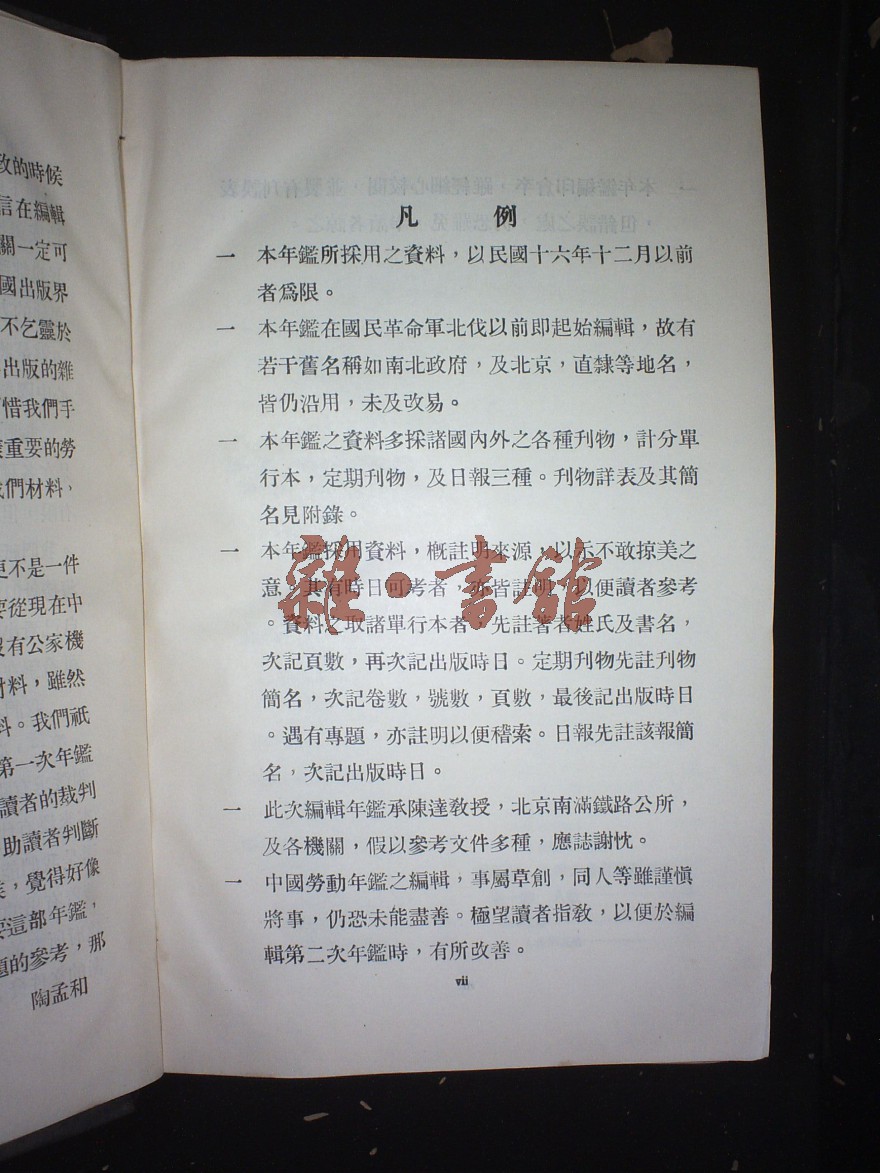 致的時候
信在編輯
關一定可
國出版界
不乞靈於
出版的雜
惜我們手
重要的勞
我們材料，
更不是一件
要從現在中
沒有公家機
材料，雖然
料。我們祇
第一次年鑑
讀者的裁判
助讀者判斷
，覺得好像
這部年鑑，
題的參考，那
陶孟和
凡例
一 本年鑑所採用之資料，以民國十六年十二月以前
者爲限。
一 本年鑑在國民革命軍北伐以前即起始編輯，故有
若干舊名稱如南北政府，及北京，直隸等地名，
皆仍沿用，未及改易。
一 本年鑑之資料多採諸國內外之各種刊物，計分單
行本，定期刊物，及日報三種。刊物詳表及其簡
名見附錄。
一 本年鑑採用資料，概註明來源，以示不敢掠美之
意。其有時日可考者，亦皆註明，以便讀者參考
。資料之取諸單行本者，先註著者姓氏及書名，
次記頁數，再次記出版時日。定期刊物先註刊物
簡名，次記卷數，號數，頁數，最後記出版時日
。遇有專題，亦註明以便稽索。日報先註該報簡
名，次記出版時日。
一 此次編輯年鑑承陳達敎授，北京南滿鐵路公所，
及各機關，假以參考文件多種，應誌謝忱。
一 中國勞動年鑑之編輯，事屬草創，同人等雖謹愼
將事，仍恐未能盡善。極望讀者指敎，以便於編
輯第二次年鑑時，有所改善。
vii
雜·書館